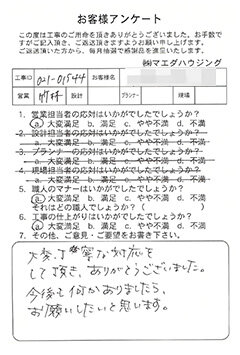 お客様アンケート
この度は工事のご用命を頂きありがとうございました。お手数で
すがご記入頂き、ご返送頂きますようお願い申し上げます。
ご返送頂いた方から、毎月抽選で感謝品を進呈いたします。
㈱マエダハウジング
工事ID 021-015744 お客様名
営業 竹林 設計 プランナー 現場
1. 営業担当者の応対はいかがでしたでしょうか?
a. 大変満足 b. 満足 c. やや不満 d. 不満
2. 設計担当者の応対はいかがでしたでしょうか?
a. 大変満足 b. 満足 c. やや不満 d. 不満
3. プランナーの応対はいかがでしたでしょうか?
a. 大変満足 b. 満足 c. やや不満 d. 不満
4. 現場担当者の応対はいかがでしたでしょうか?
a. 大変満足 b. 満足 c. やや不満 d. 不満
5. 職人のマナーはいかがでしたでしょうか?
a. 大変満足 b. 満足 c. やや不満 d. 不満
それはどの職人でしょうか? ( )
6. 工事の仕上がりはいかがでしたでしょうか?
a. 大変満足 b. 満足 c. やや不満 d. 不満
7. その他、ご意見・ご要望をお書き下さい。
大変丁寧な対応を
して頂き、ありがとうございました。
今後も何かありましたら、
お願いしたいと思います。